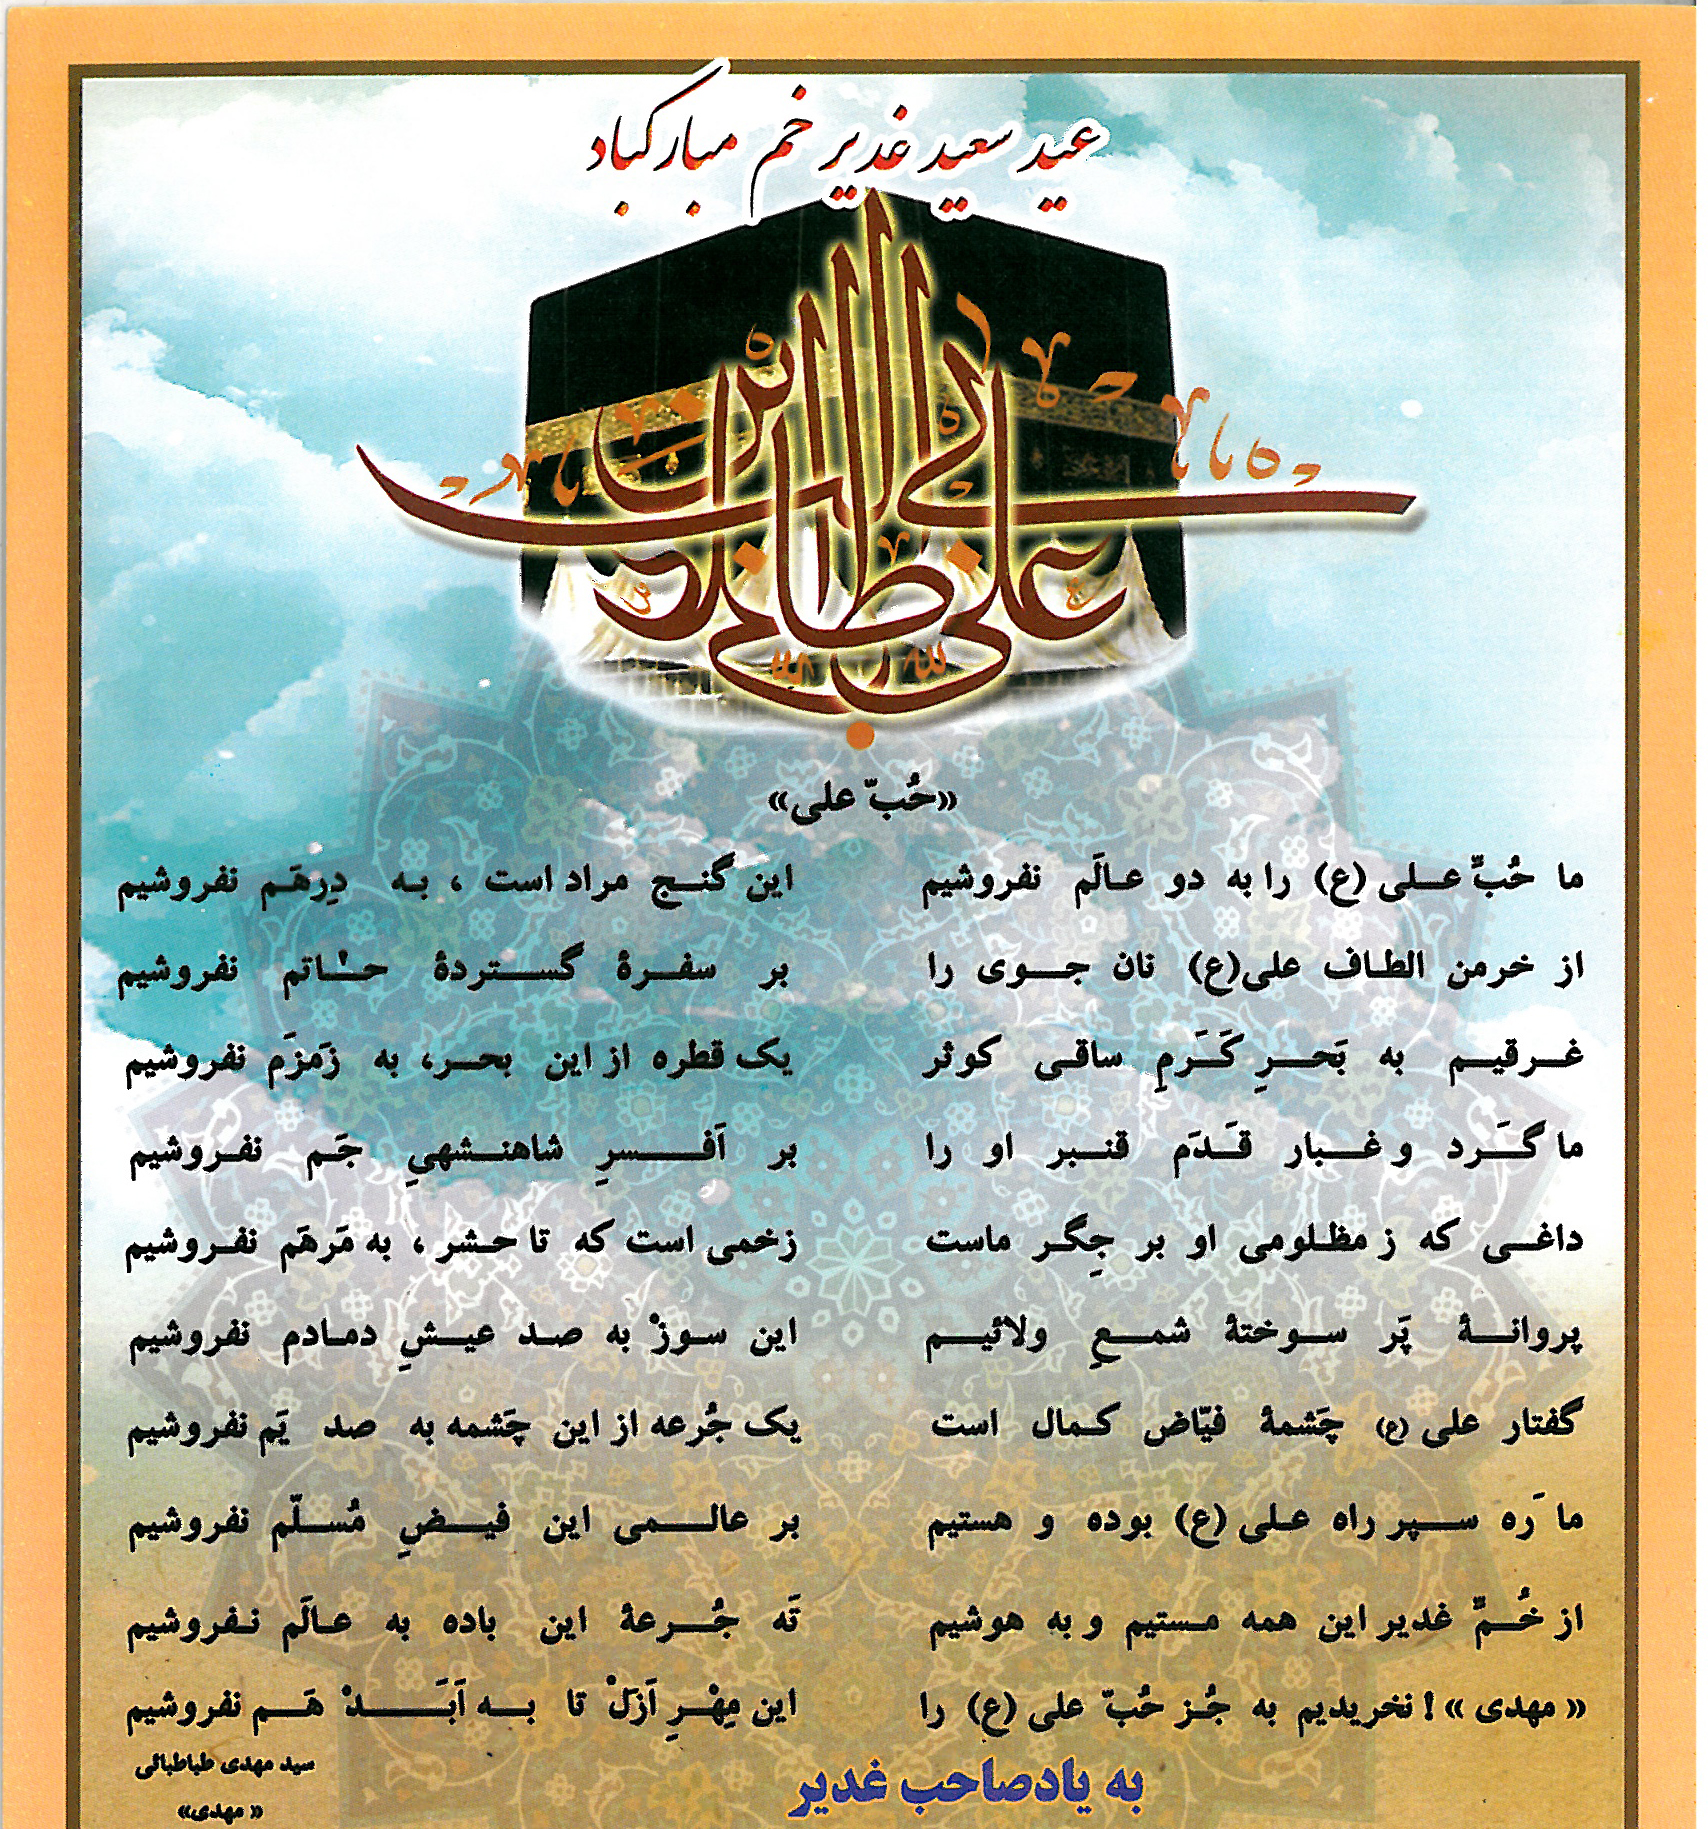 عید سعید غدیر خم مبارکباد
علی بن ابی طالب
«حُبّ علی»
ما حُبِّ علی (ع) را به دو عالَم نفروشیم این گنج مراد است ، به دِرهَم نفروشیم
از خرمن الطاف علی(ع) نان جوی را بر سفرهٔ گستردهٔ حاتم نفروشیم
غرقیم به بَحرِ کَرَمِ ساقی کوثر یک قطره از این بحر، به زَمزَم نفروشیم
ما گَرد و غبار قَدَم قنبر او را بر اَفسرِ شاهنشهیِ جَم نفروشیم
داغی که ز مظلومی او بر جِگر ماست زخمی است که تا حشر ، به مَرهَم نفروشیم
پروانهٔ پَر سوختهٔ شمعِ ولائیم این سوزْ به صد عیشِ دمادم نفروشیم
گفتار علی (ع) چَشمهٔ فیّاض کمال است یک جُرعه از این چَشمه به صد یَم نفروشیم
ما رَه سپر راه علی (ع) بوده و هستیم بر عالمی این فیضِ مُسلّم نفروشیم
از خُمِّ غدیر این همه مستیم و به هوشیم تَه جُرعهٔ این باده به عالَم نفروشیم
« مهدی » ! نخریدیم به جُز حُبّ علی (ع) را این مِهْرِ اَزلْ تا به اَبَدْ هَم نفروشیم
سید مهدی طباطبائی
« مهدی»
به یاد صاحب غدیر